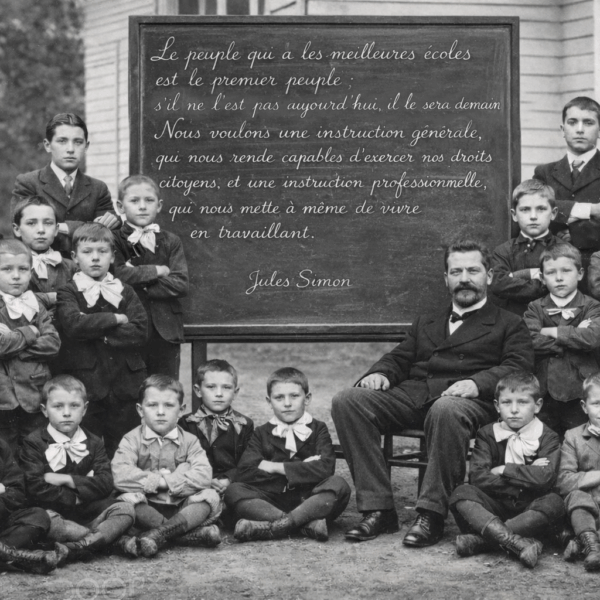 Le peuple qui à les meilleures écoles
est le premier peuple ;
s'il ne l'est pas aujourd'hui, il le sera demain
Nous voulons une instruction générale,
qui nous rende capables d'exercer nos droits
citoyens, et une instruction professionnelle,
qui nous mette à même de vivre
en travaillant.
Jules Simon